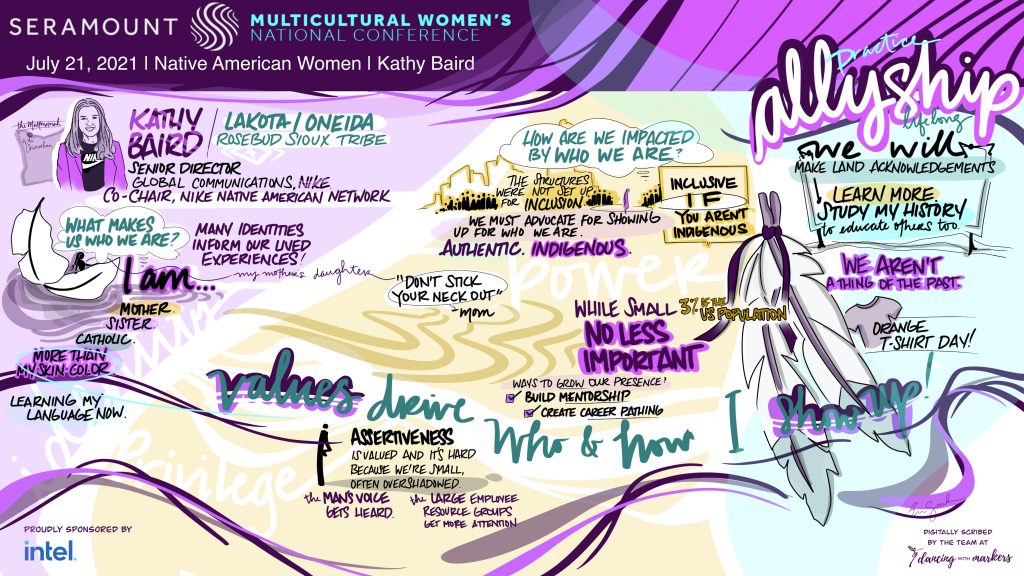 SERAMOUNT
MULTICULTURAL WOMEN'S
NATIONAL CONFERENCE
July 21, 2021 | Native American Women | Kathy Baird
KATHY
BAIRD
LAKOTA / ONEIDA
ROSEBUD SIOUX TRIBE
SENIOR DIRECTOR
GLOBAL COMMUNICATIONS, NIKE
CO-CHAIR, NIKE NATIVE AMERICAN NETWORK
NIKE
WHAT MAKES
US WHO WE ARE?
MANY IDENTITIES
INFORM OUR LIVED
EXPERIENCES!
I am...
my mother's daughter
MOTHER
SISTER.
CATHOLIC.
MORE THAN
MY SKIN-COLOR
LEARNING MY
LANGUAGE NOW.
privilege
power
HOW ARE WE IMPACTED
BY WHO WE ARE?
THE STRUCTURES
WERE NOT SET UP
FOR INCLUSION
INCLUSIVE
IF
YOU ARENT
INDIGENOUS
WE MUST ADVOCATE FOR SHOWING
UP FOR WHO WE ARE.
AUTHENTIC. INDIGENOUS.
"DON'T STICK
YOUR NECK OUT"
-mom
WHILE SMALL 3% OF THE
US POPULATION
NO LESS
IMPORTANT
WAYS TO GROW OUR PRESENCE?
BUILD MENTORSHIP
CREATE CAREER PATHING
values drive
Who & how I show up!
ASSERTIVENESS
IS VALUED AND IT'S HARD
BECAUSE WE'RE SMALL,
OFTEN OVERSHADOWED.
the MAN'S VOICE
GETS HEARD.
the LARGE EMPLOYEE
RESOURCE GROUPS
GET MORE ATTENTION
Practice
allyship
lifelong
we will
MAKE LAND ACKNOWLEDGEMENTS
LEARN MORE.
STUDY MY HISTORY
to educate others too.
WE AREN'T
A THING OF THE PAST.
ORANGE
T-SHIRT DAY!
PROUDLY SPONSORED BY
intel.
DIGITALLY SCRIBED
BY THE TEAM AT
dancing WITH markers